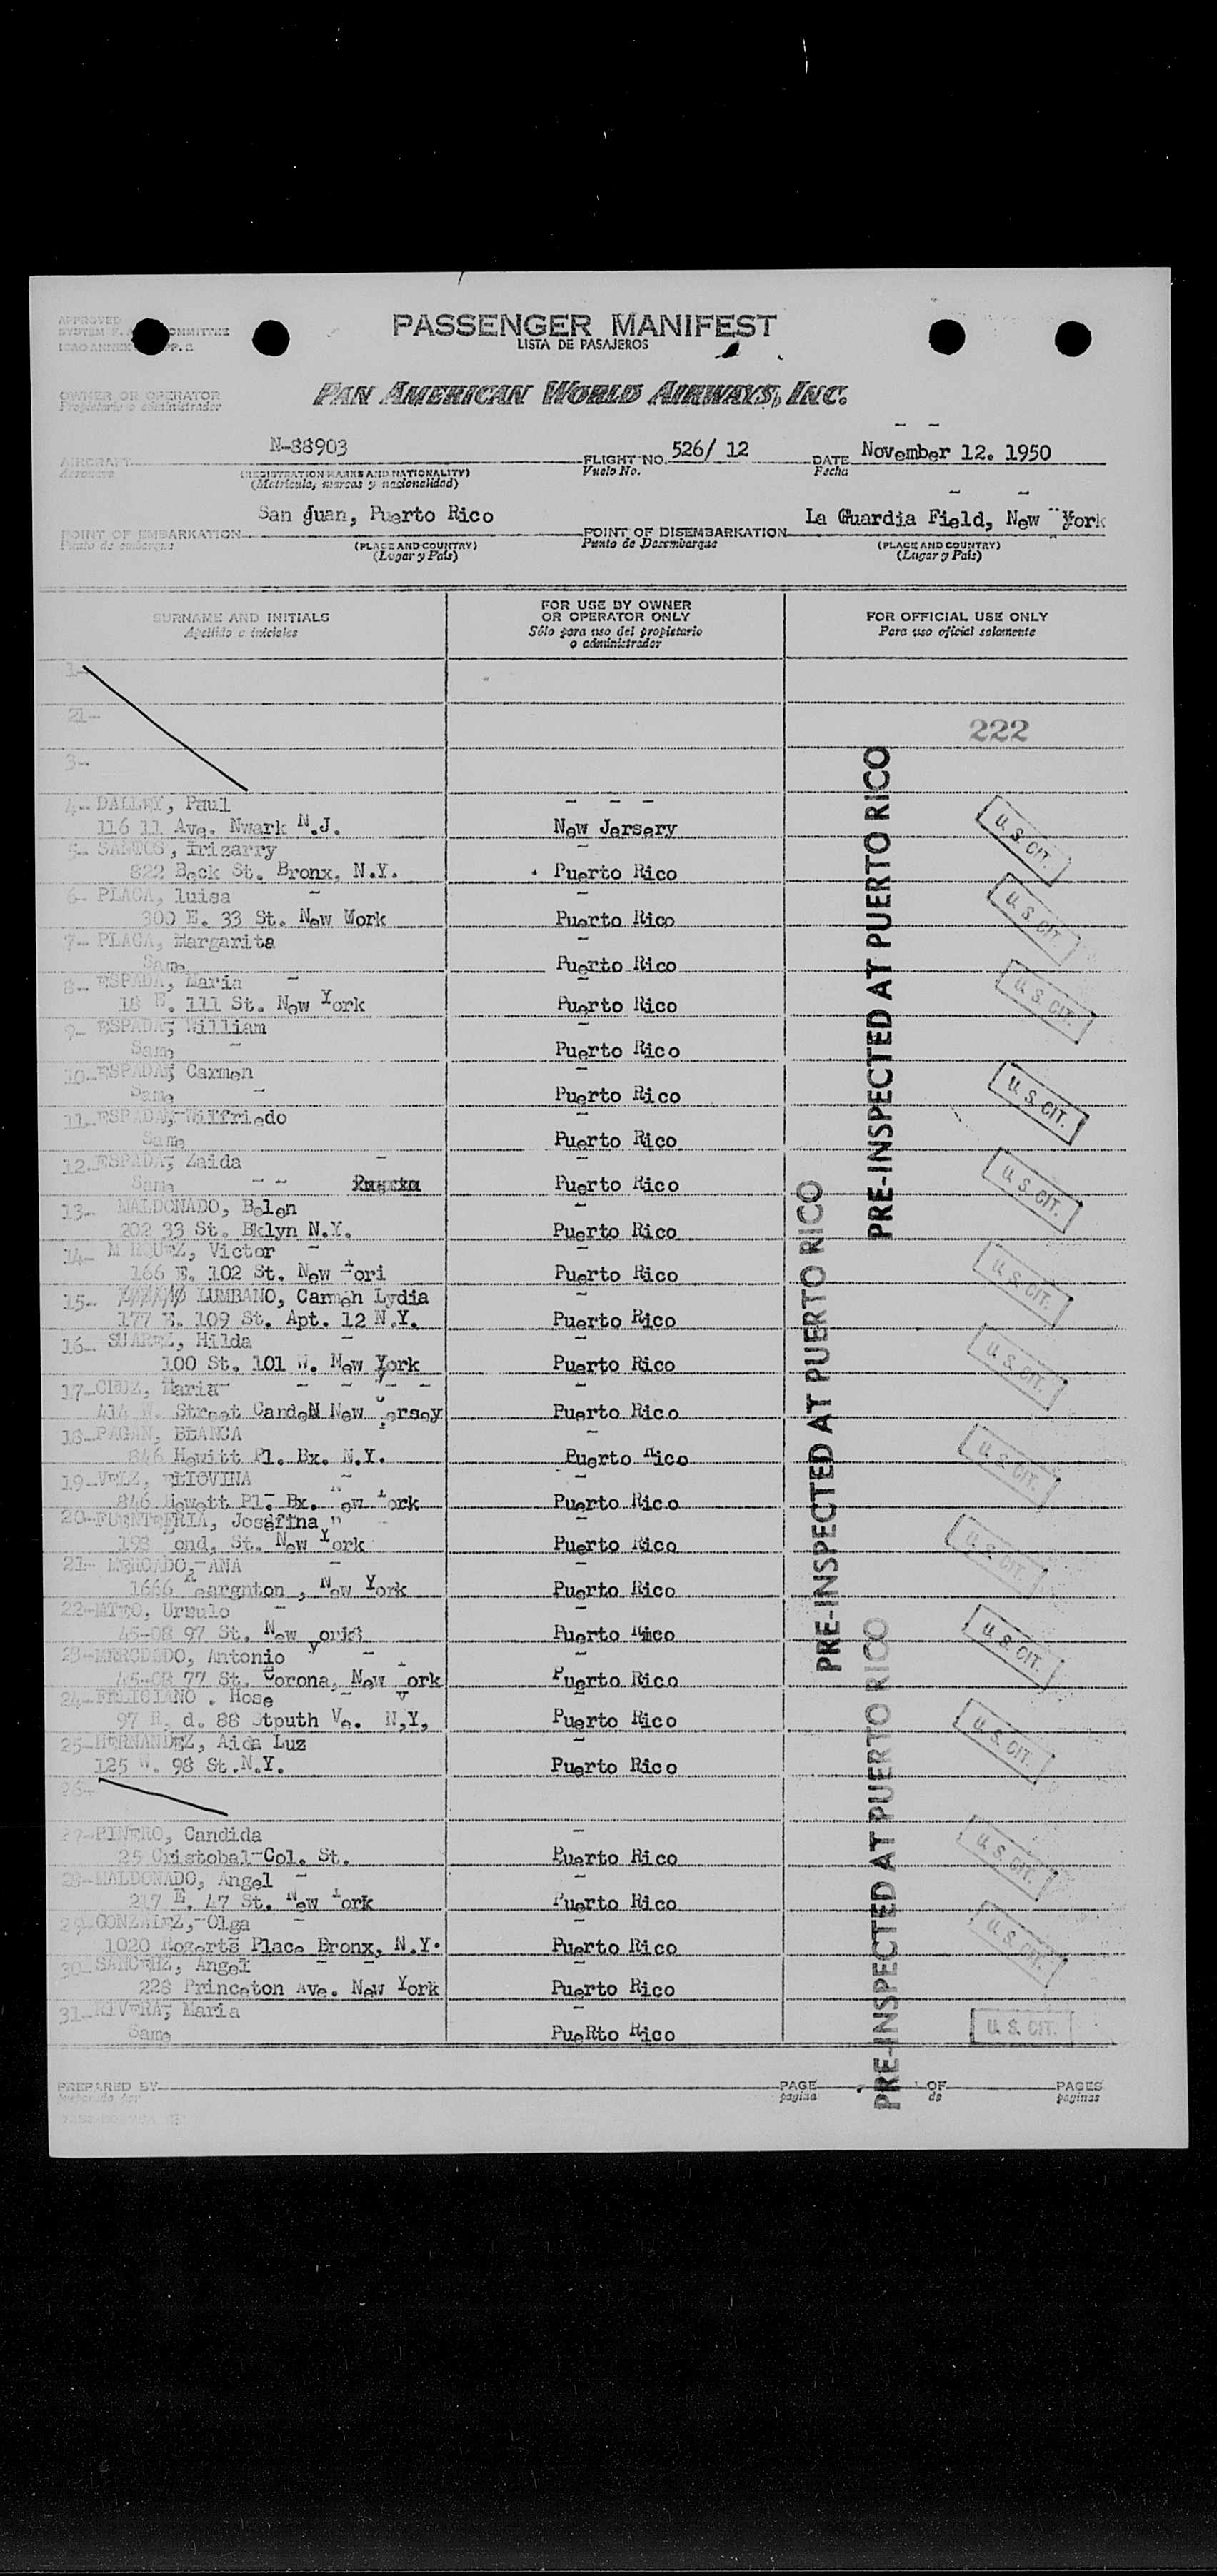 APPROVED
SYSTEM F. A. COMMITTEE
ICAO ANNEX PP. 2
PASSENGER MANIFEST
LISTA DE PASAJEROS
OWNER OR OPERATOR
Propietario o administrador
PAN AMERICAN WORLD AIRWAYS, INC.
AIRCRAFT N-88903
Aeronave
(REGISTRATION MARKS AND NATIONALITY)
(Matricula, marcas y nacionalidad)
FLIGHT NO. 526/ 12
Vuelo No.
DATE November 12. 1950
Fecha
POINT OF EMBARKATION San Juan, Puerto Rico
Punto de embarque
(PLACE AND COUNTRY)
(Lugar y Pais)
POINT OF DISEMBARKATION La Guardia Field, New York
Punto de Desembarque
(PLACE AND COUNTRY)
(Lugar y Pais)
SURNAME AND INITIALS
Apellido e iniciales
FOR USE BY OWNER
OR OPERATOR ONLY
Sólo para uso del propietario
o administrador
FOR OFFICIAL USE ONLY
Para uso oficial solamente
1-
21-
222
3-
4- DALLEY, Paul
116 11 Ave. Nwark N.J. New Jersery
5- SANTOS, Irizarry
822 Beck St. Bronx, N.Y. Puerto Rico
6- PLACA, luisa
300 E. 33 St. New Work Puerto Rico
7- PLACA, Margarita
Same Puerto Rico
8- ESPADA, Maria
18 E. 111 St. New York Puerto Rico
9- ESPADA, William
Same Puerto Rico
10- ESPADA, Carmen
Same Puerto Rico
11- ESPADA, Wilfriedo
Same Puerto Rico
12- ESPADA, Zaida
Same Puerto Rico
13- MALDONADO, Belen
202 33 St. Bklyn N.Y. Puerto Rico
14- MRQUEZ, Victor
166 E. 102 St. New Yori Puerto Rico
15- LUMBANO, Carmen Lydia
177 E. 109 St. Apt. 12 N.Y. Puerto Rico
16- SUAREZ, Hilda
100 St. 101 W. New York Puerto Rico
17- CRUZ, Maria
414 W. Street CandeN New Jersey Puerto Rico
18- PAGAN, BLANCA
846 Hewitt Pl. Bx. N.Y. Puerto Rico
19- VELZ, ELIOVINA
846 Hewett Pl. Bx. New York Puerto Rico
20- Josefina
198 ond, St. New York Puerto Rico
21- MERCADO, ANA
1666 New York Puerto Rico
22- MTEO, Ursulo
45-08 97 St. New Puerto Rico
23- MERCDEDO, Antonio
45-08 77 St. Corona, New York Puerto Rico
24- FELICIANO . Hose
97 R, d. 88 Stputh Ve. N,Y, Puerto Rico
25- HERNANDEZ, Aida Luz
125 W. 98 St.N.Y. Puerto Rico
26-
27- PINERO, Candida
25 Cristobal Col. St. Puerto Rico
28- MALDONADO, Angel
217 E. 47 St. New York Puerto Rico
29- GONZALEZ, Olga
1020 Rogerts Place Bronx, N.Y. Puerto Rico
30- SANCEHZ, Angel
228 Princeton Ave. New York Puerto Rico
31- RIVERA, Maria
Same PueRto Rico
PRE-INSPECTED AT PUERTO RICO
PRE-INSPECTED AT PUERTO RICO
PRE-INSPECTED AT PUERTO RICO
U. S. CIT.
U. S. CIT.
U. S. CIT.
U. S. CIT.
U. S. CIT.
U. S. CIT.
U. S. CIT.
U. S. CIT.
U. S. CIT.
U. S. CIT.
U. S. CIT.
U. S. CIT.
U. S. CIT.
U. S. CIT.
PREPARED BY
PAGE OF PAGES
pagina de paginas